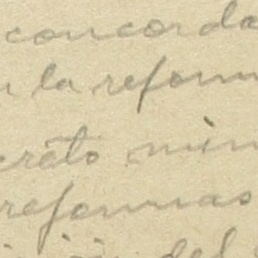 concorda
la reform
creto min
reformas
del